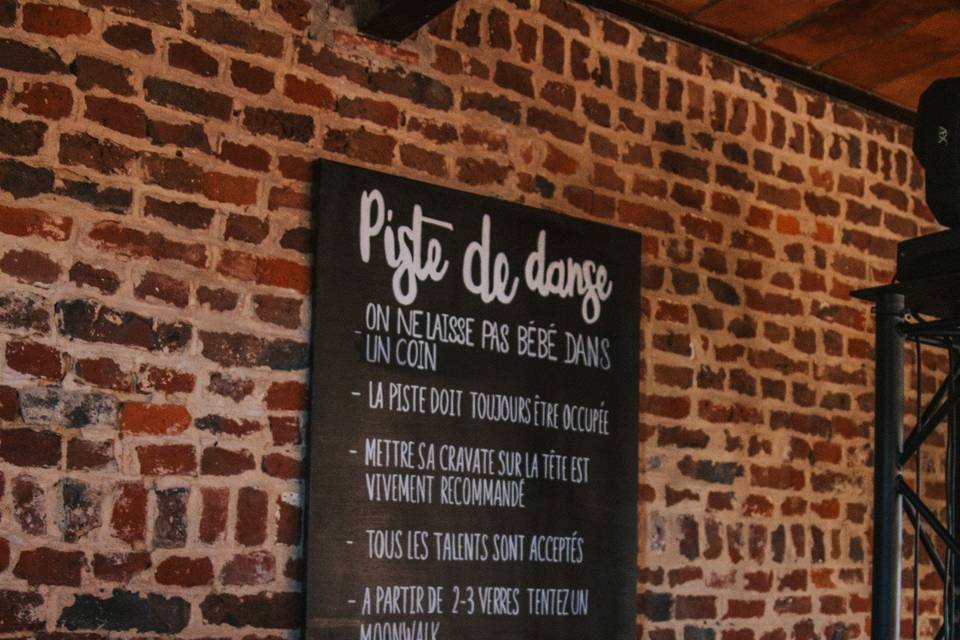 Piste de danse
- ON NE LAISSE PAS BÉBÉ DANS
UN COIN
- LA PISTE DOIT TOUJOURS ÊTRE OCCUPÉE
- METTRE SA CRAVATE SUR LA TÊTE EST
VIVEMENT RECOMMANDÉ
- TOUS LES TALENTS SONT ACCEPTÉS
- A PARTIR DE 2-3 VERRES TENTEZ UN
MOONWALK